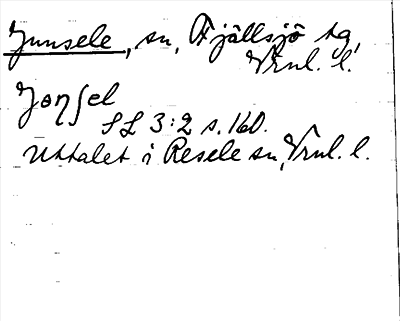 Junsele, sn, Fjällsjö tg,
Vrnl. l.
Joŋsel
SL 3:2 s. 160.
Uttalet i Resele sn, Vrnl. l.